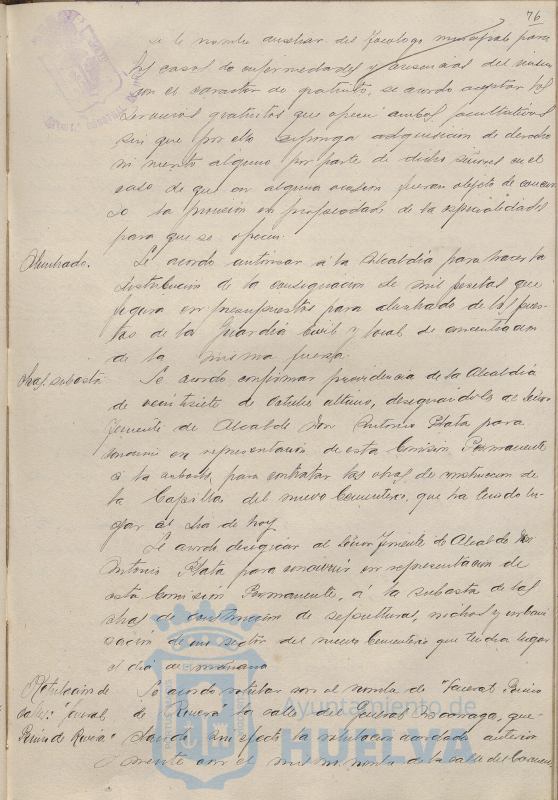 76
se le nombre auxiliar del Tocólogo municipal para
los casos de enfermedades y ausencias del mismo
con el carácter de gratuito, se acordó aceptar los
servicios gratuitos que ofrecen ambos facultativos
sin que por ello suponga adquisición de derecho
ni mérito alguno por parte de dichos señores en el
caso de que en alguna ocasión fueran objeto de concur
so la provisión en propiedad de la especialidades
para que se ofrecen.
Alumbrado.
Se acordó autorizar á la Alcaldía para hacer la
distribución de la consignación de mil pesetas que
figura en presupuestos para alumbrado de los pues-
tos de la Guardia Civil y local de concentración
de la misma fuerza.
Obras subasta
Se acordó confirmar providencia de la Alcaldía
de veintisiete de Octubre último, designándole al Señor
Teniente de Alcalde Don Antonio Plata para
concurrir en representación de esta Comisión Permanente
á la subasta para contratar las obras de construcción de
la Capilla del nuevo Cementerio, que ha tenido lu-
gar el día de hoy.
Se acordó designar al Señor Teniente de Alcalde Don
Antonio Plata para concurrir en representación de
esta Comisión Permanente, á la subasta de las
obras de construcción de sepulturas, nichos y urbani-
zación de un sector del nuevo Cementerio que tendrá lugar
el día de mañana
Rotulación de
calles: General
Primo de Rivera.
Se acordó rotular con el nombre de "General Primo
de Rivera" la calle del General Azcárraga, que-
dando sin efecto la rotulación acordada anterior
mente con el mismo nombre de la calle del
Ayuntamiento de
HUELVA